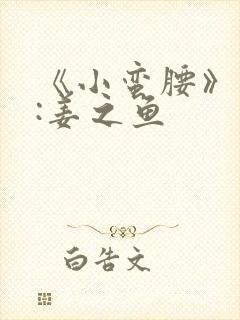 《小蛮腰》
:姜之鱼
白告文